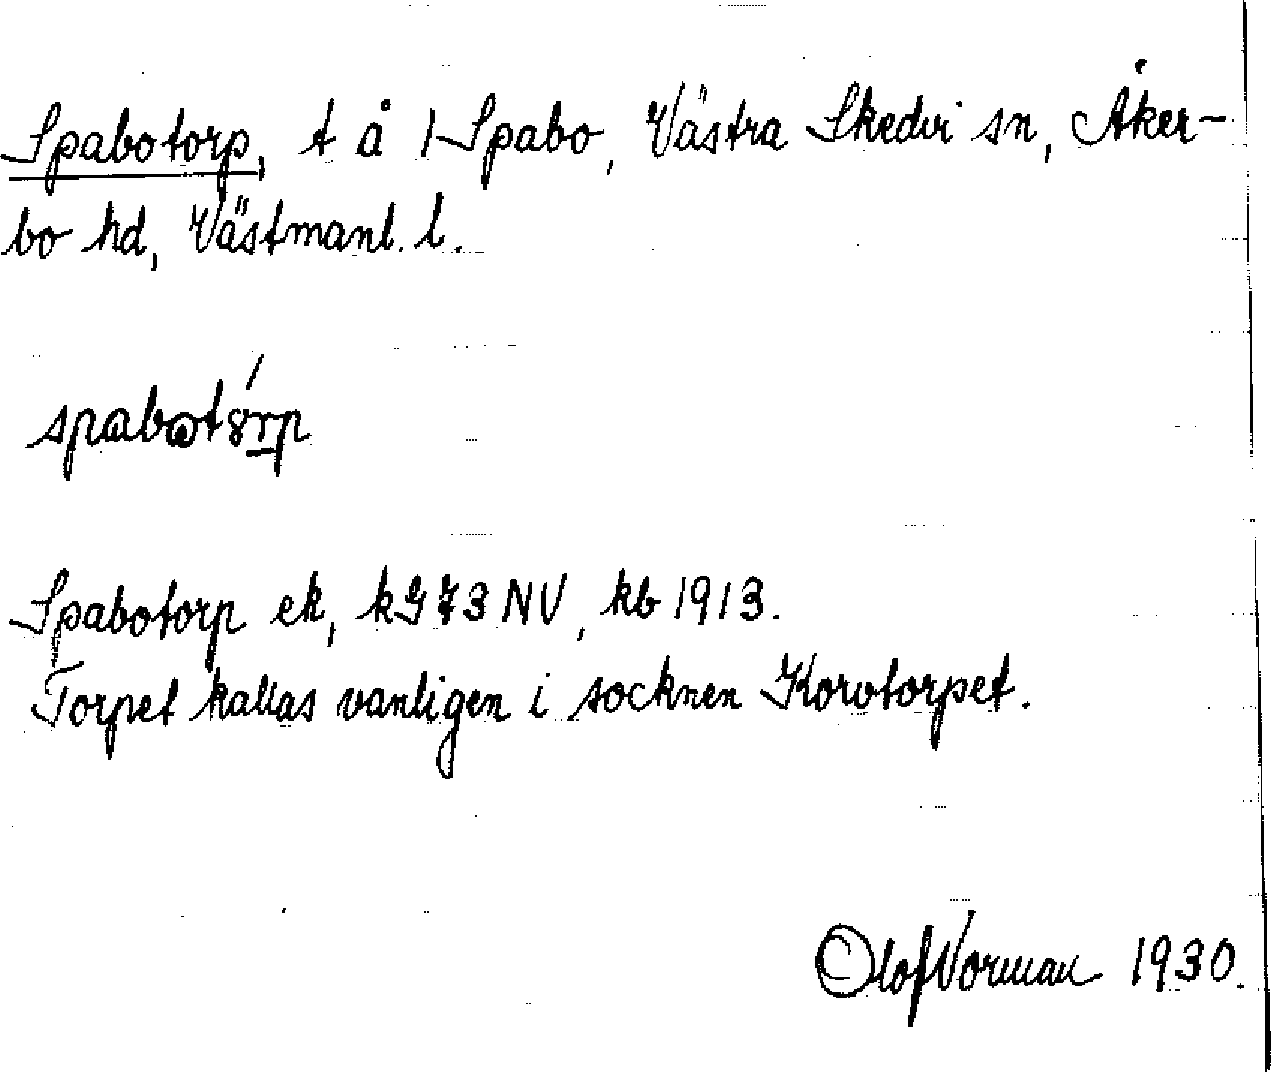 Spabotorp, t å 1 Spabo, Västra Skedvi sn, Åker-
bo hd, Västmanl. l.
spabotórp
Spabotorp ek, kg 73 NV, kb 1913.
Torpet kallas vanligen i socknen Korvtorpet.
Olof Vorman 1930.